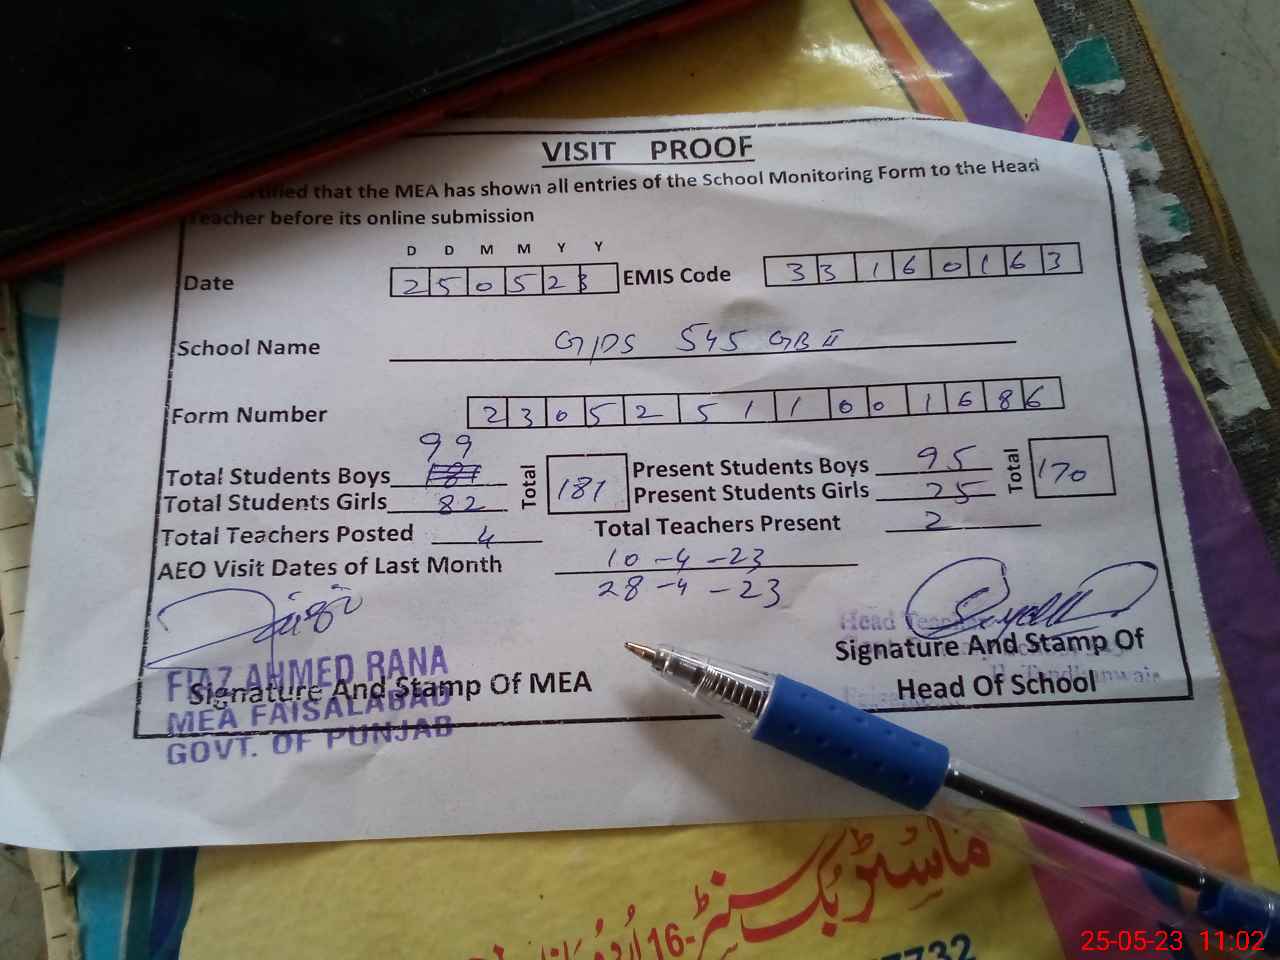 VISIT PROOF
that the MEA has shown all entries of the School Monitoring Form to the Head
Teacher before its online submission
D D M M Y Y
Date 2 5 0 5 2 3 EMIS Code 3 3 1 6 0 1 6 3
School Name G/PS 545 GB II
Form Number 2 3 0 5 2 5 1 1 0 0 1 6 8 6
99
Total Students Boys 181 Total 181 Present Students Boys 95 Total 170
Total Students Girls 82 Present Students Girls 75
Total Teachers Posted 4 Total Teachers Present 2
AEO Visit Dates of Last Month 10-4-23
28-4-23
Head Teacher
Signature And Stamp Of
Head Of School
FIAZ AHMED RANA
Signature And Stamp Of MEA
MEA FAISALABAD
GOVT. OF PUNJAB
ماسٹر بُک سنٹر
16-اُردو بازار
7732
25-05-23 11:02